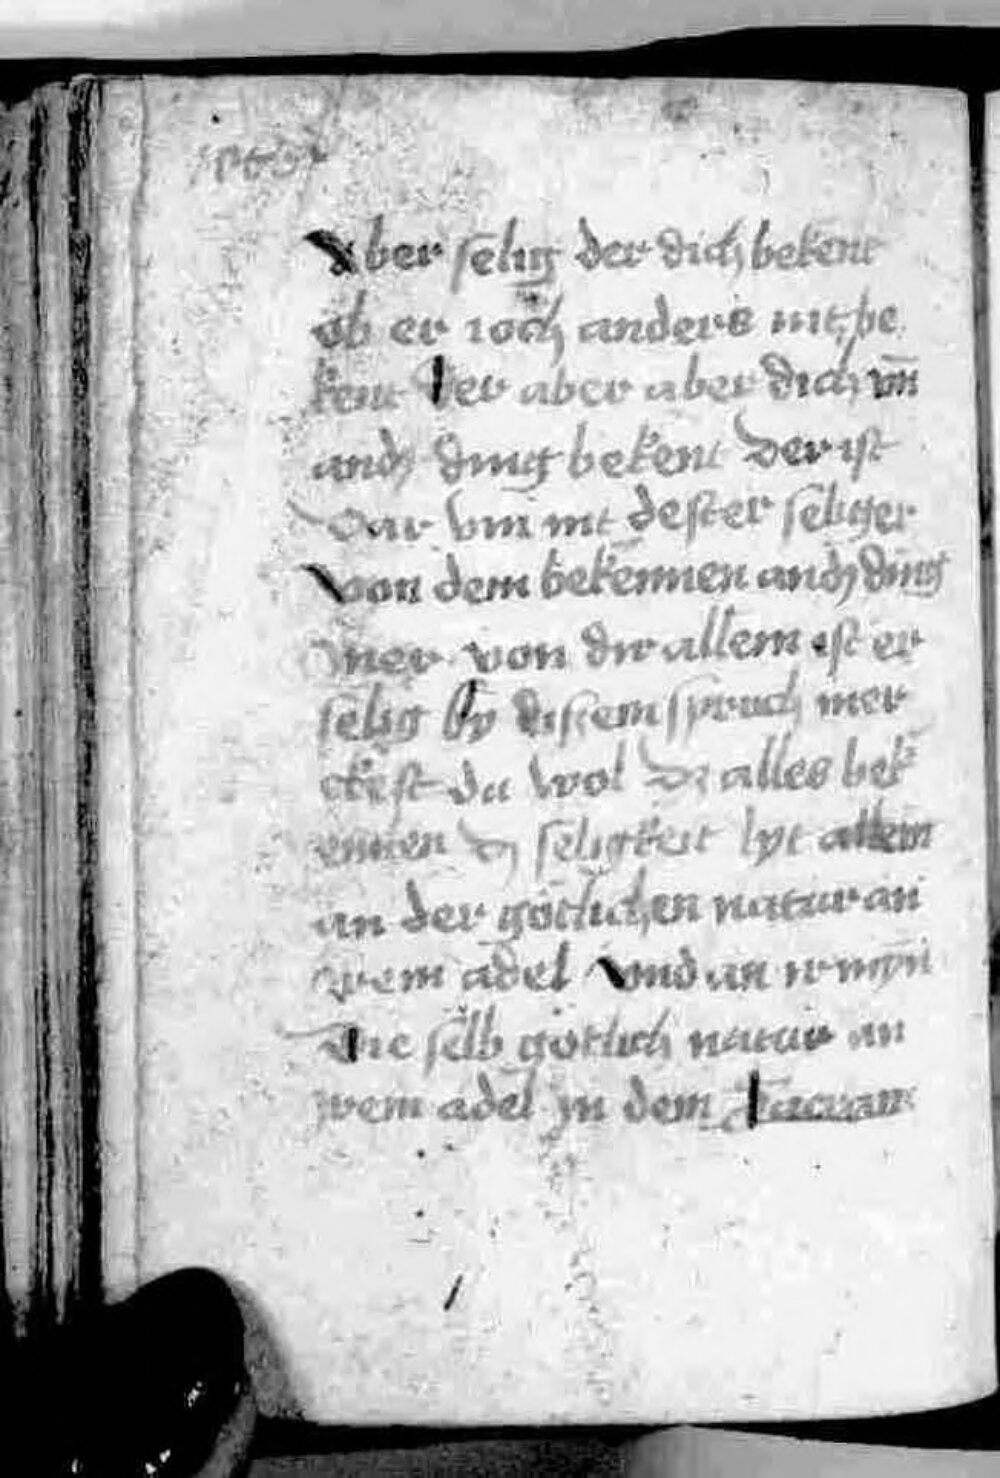 Aber selig der dich bekent
ob er ioch anders nit be
kent Der aber aber dich vn̄
andˀ ding bekent Der ist
Dar vm nit dester seliger
von dem bekennen andˀ ding
von dir allem ist er
selig by disem spruch mer
ckest du wol Dz alles bek
ennen dˀ seligkeit lyt allein
an der gotlichen natur an
irem adel vnd an ir
Die selb gotlich natur an
irem adel jn dem